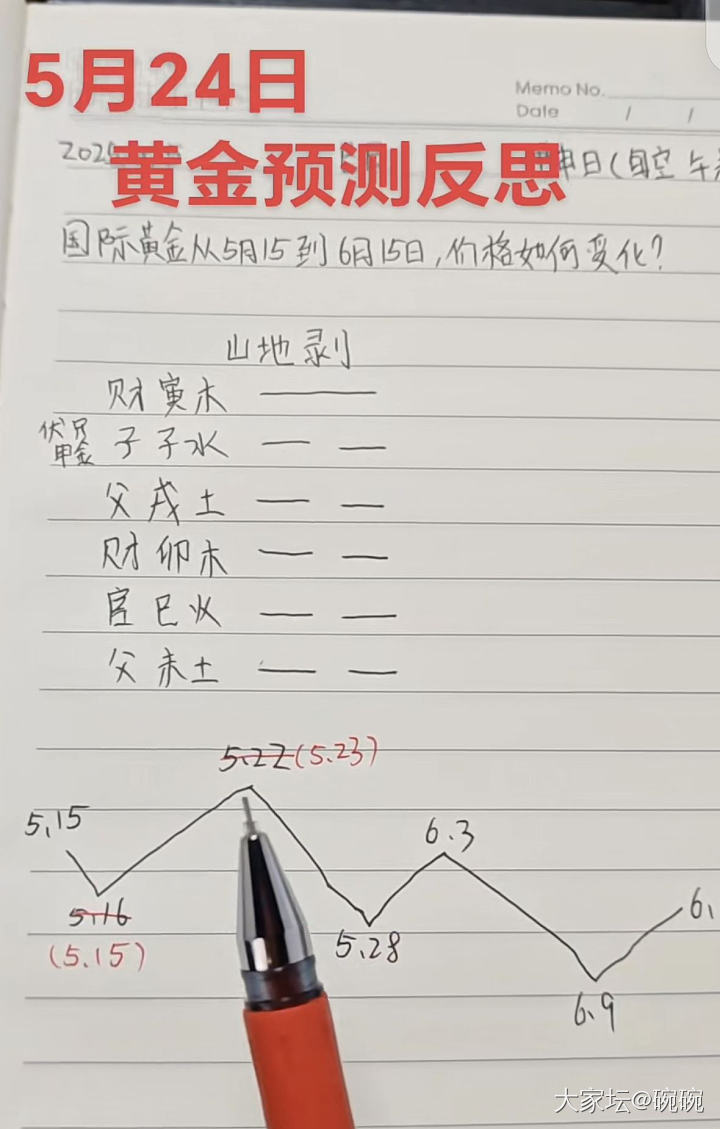 5月24日
Memo No.
Date / /
黄金预测反思
日(旬空午
国际黄金从5月15到6月15日,价格如何变化?
山地剥
财寅木
伏兄
申金
子子水
父戌土
财卯木
官巳火
父未土
5.22(5.23)
5.15
6.3
5.16
(5.15)
5.28
6.
6.9
大家坛@碗碗